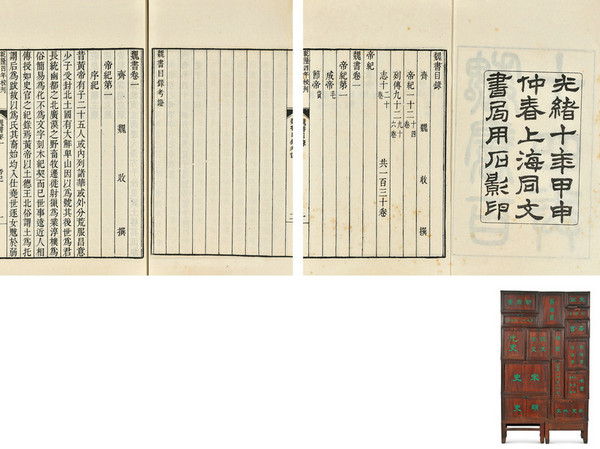 光緒十年甲申
仲春上海同文
書局用石影印
魏書目錄
齊 魏 收 撰
帝紀一十二卷 十四
列傳九十二卷 九十六卷
志十 二十
共一百三十卷
魏書卷一
帝紀第一
成帝毛
節帝貸
乾隆四年校刊
魏書目錄考證
魏書卷一
齊 魏 收 撰
帝紀第一
序紀
昔黃帝有子二十五人或內列諸華或外分荒服昌意
少子受封北土國有大鮮卑山因以爲號其後世爲君
長統幽都之北廣漠之野畜牧遷徙射獵爲業淳樸爲
俗簡易爲化不爲文字刻木紀契而已世事遠近人相
傳授如史官之紀錄焉黃帝以土德王北俗謂土爲托
謂后爲跋故以爲氏其裔始均入仕堯世逐女魃於弱
乾隆四年校刊
魏書卷一
宋史